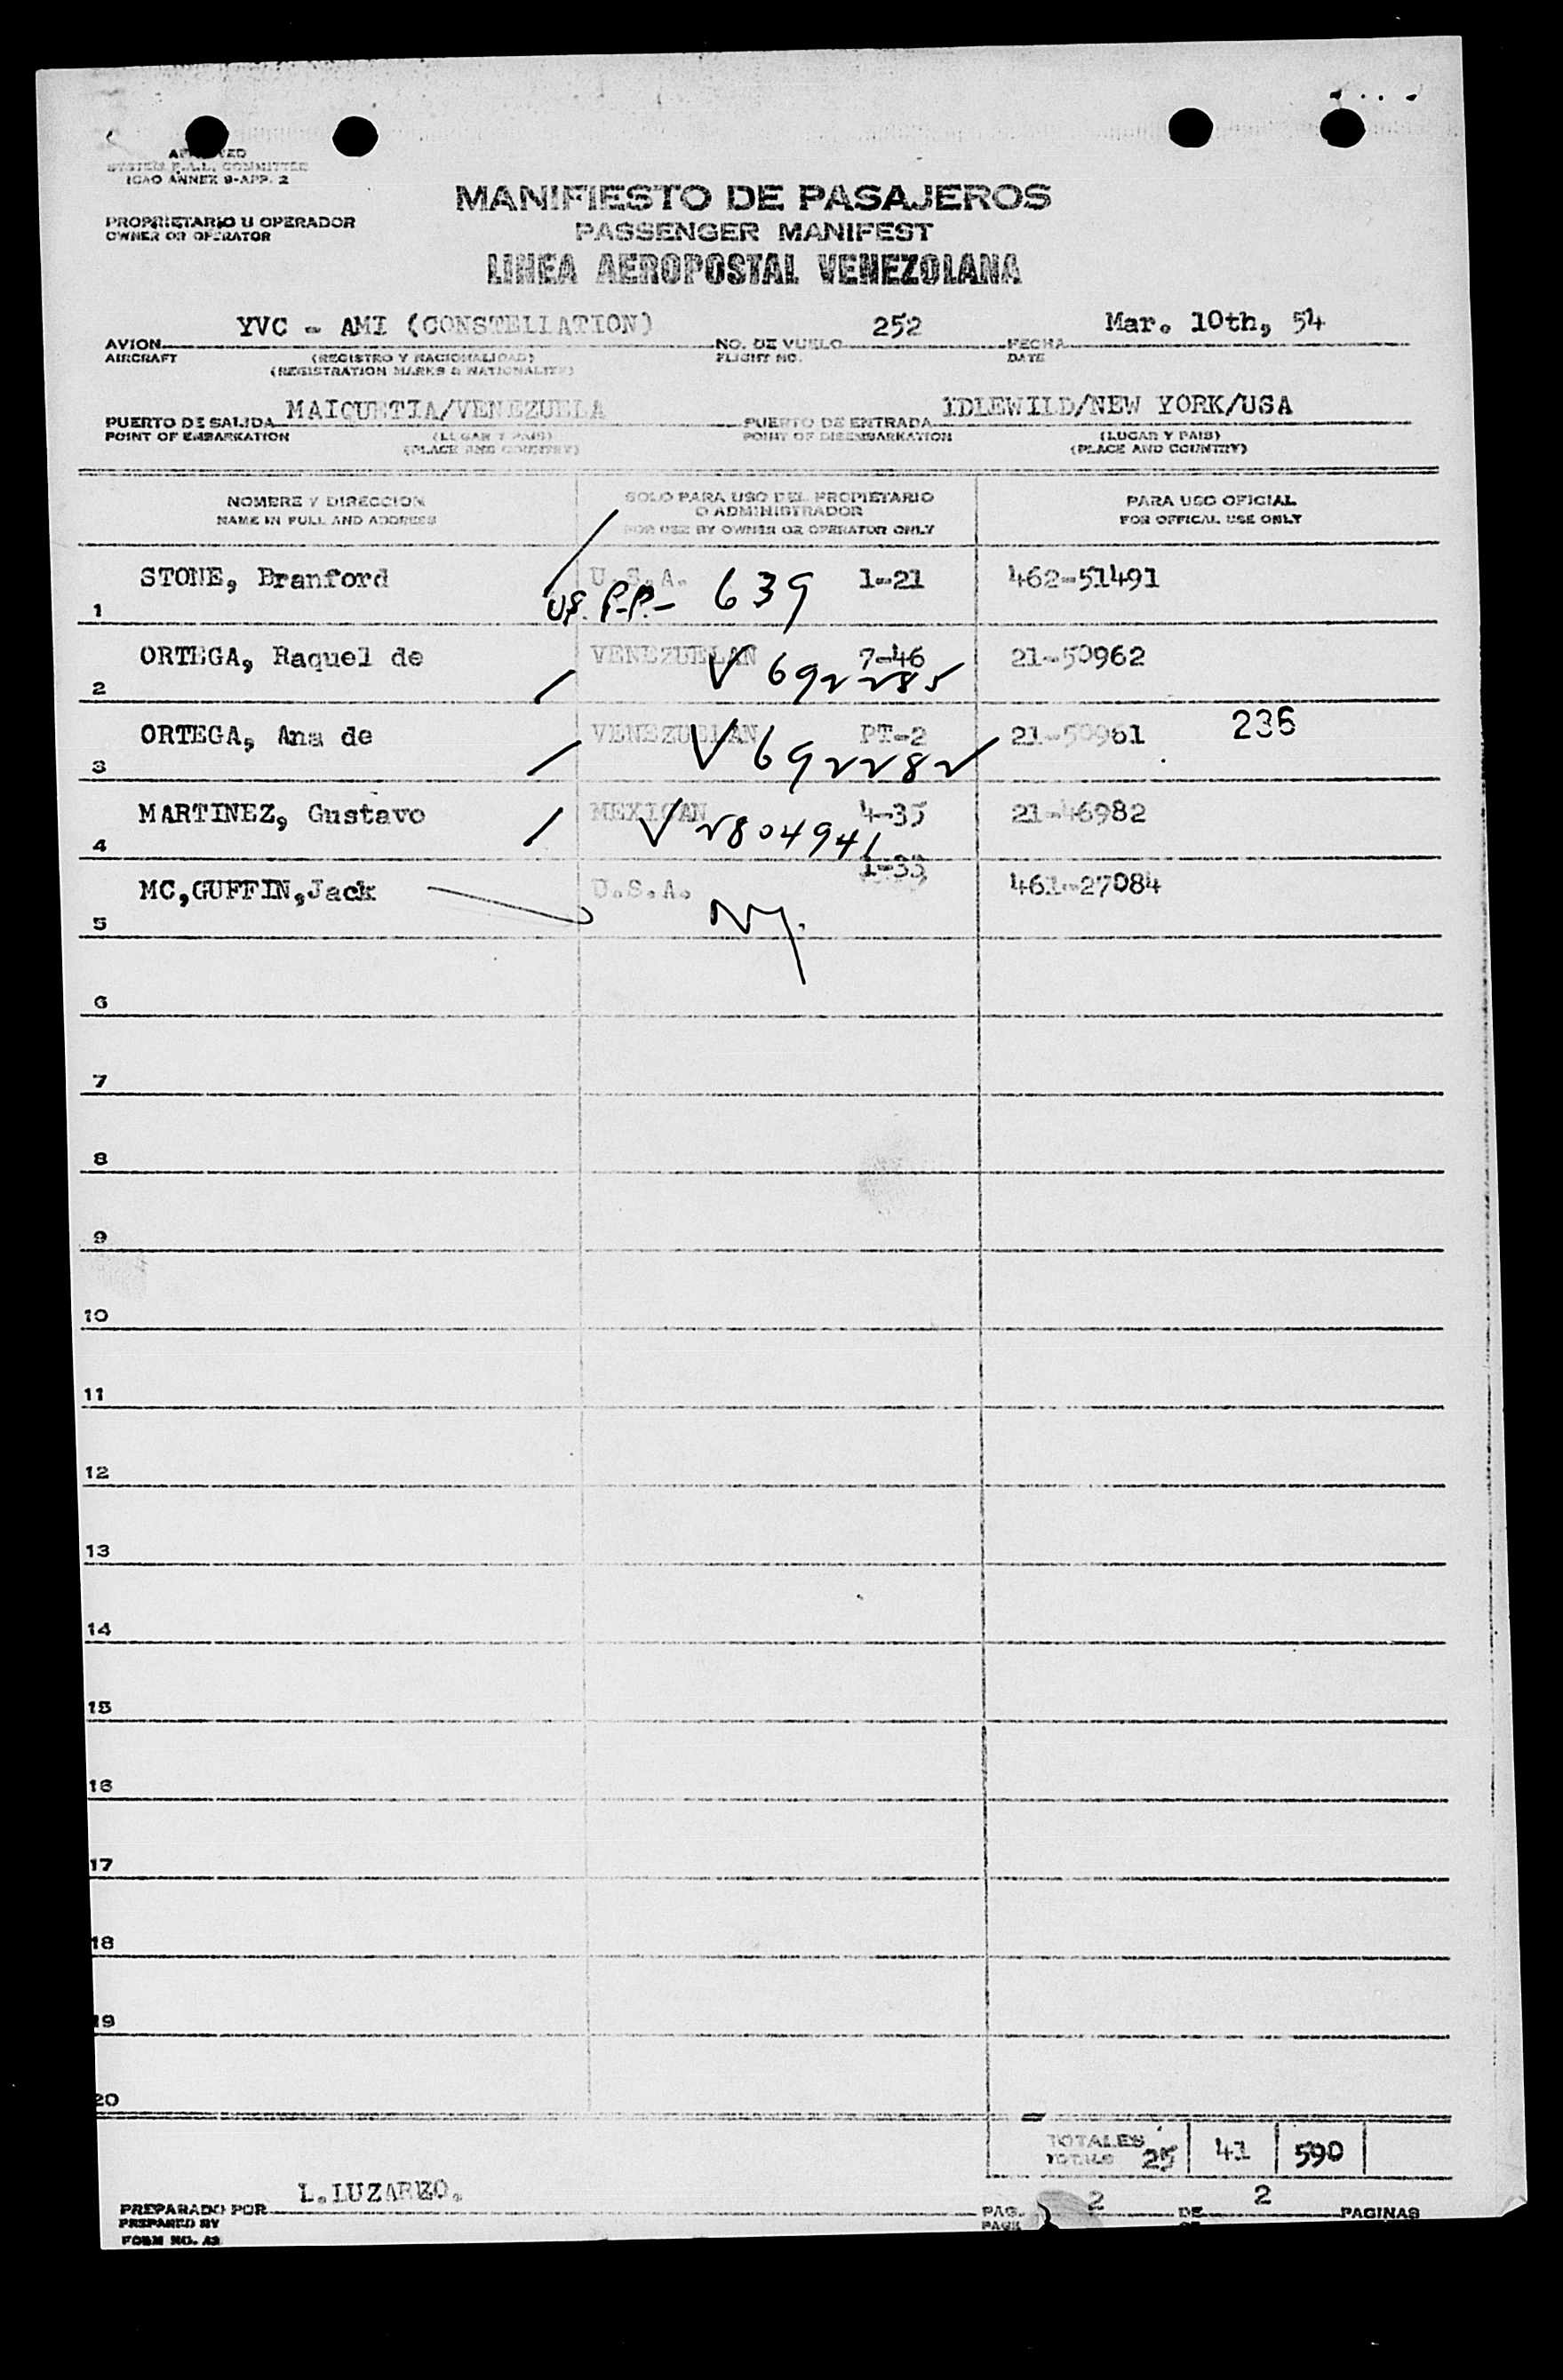 APPROVED
SYSTEM F.A.L. COMMITTEE
ICAO ANNEX 9-APP. 2
MANIFIESTO DE PASAJEROS
PROPRIETARIO U OPERADOR
OWNER OR OPERATOR
PASSENGER MANIFEST
LINEA AEROPOSTAL VENEZOLANA
YVC - AMI (CONSTELLATION) 252 Mar. 10th, 54
AVION NO. DE VUELO FECHA
AIRCRAFT (REGISTRO Y NACIONALIDAD) FLIGHT NO. DATE
(REGISTRATION MARKS & NATIONALITY)
MAIQUETIA/VENEZUELA IDLEWILD/NEW YORK/USA
PUERTO DE SALIDA PUERTO DE ENTRADA
POINT OF EMBARKATION (LUGAR Y PAIS) POINT OF DISEMBARKATION (LUGAR Y PAIS)
(PLACE AND COUNTRY) (PLACE AND COUNTRY)
NOMBRE Y DIRECCION SOLO PARA USO DEL PROPIETARIO PARA USO OFICIAL
O ADMINISTRADOR
NAME IN FULL AND ADDRESS FOR USE BY OWNER OR OPERATOR ONLY FOR OFFICAL USE ONLY
STONE, Branford U.S.A. 1-21 462-51491
1 US. P.P.- 639
ORTEGA, Raquel de VENEZUELAN 7-46 21-50962
2 V 692285
ORTEGA, Ana de VENEZUELAN PT-2 21-50961 236
3 V 692282
MARTINEZ, Gustavo MEXICAN 4-35 21-46982
4 V 2804941
1-33
MC,GUFFIN,Jack U.S.A. 461-27084
5 NY.
6
7
8
9
10
11
12
13
14
15
16
17
18
19
20
TOTALES
TOTALS 25 41 590
L.LUZARDO. 2 2
PREPARADO POR PAG. DE PAGINAS
PREPARED BY PAGE OF
FORM NO.